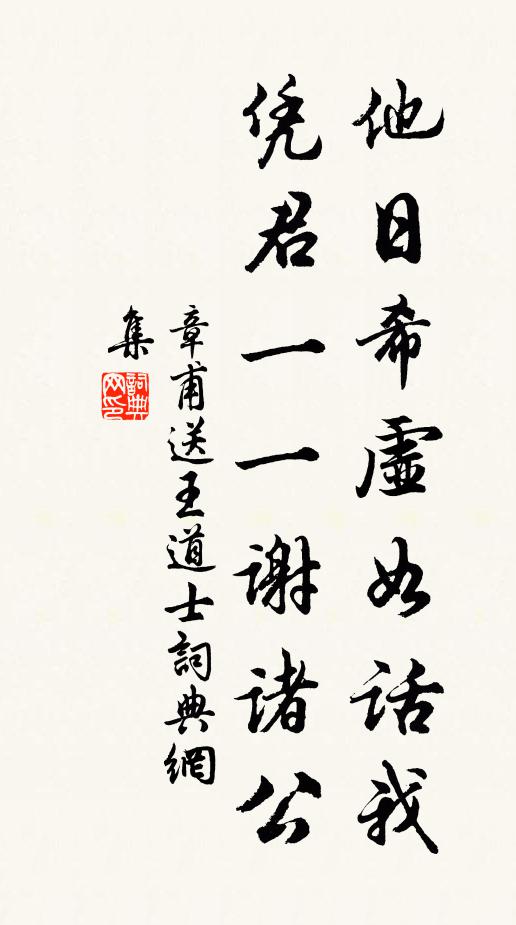 他日希虚如话我
凭君一一谢诸公
章甫送王道士詞典網
集
詞典网印